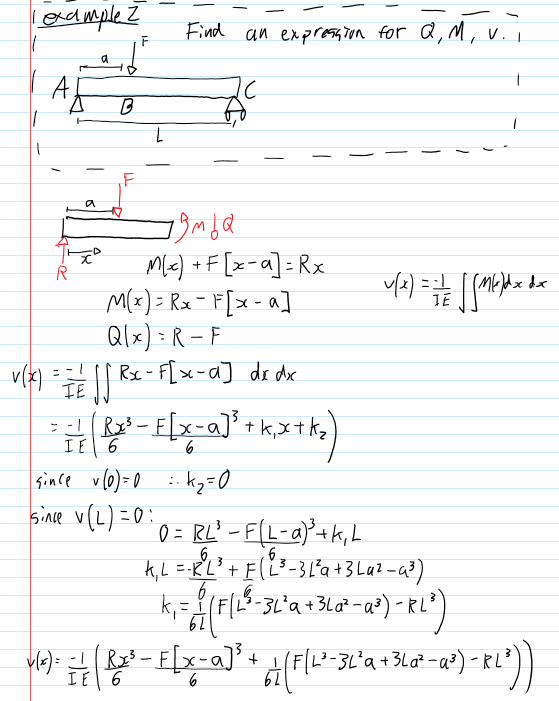 example 2
Find an expression for Q, M, v.
F
a
A
B
C
L
F
a
M Q
x
R
M(x) + F[x-a] = Rx
v(x) = -1/IE ∫∫M(x)dx dx
M(x) = Rx - F[x-a]
Q(x) = R - F
v(x) = -1/IE ∫∫ Rx - F[x-a] dx dx
= -1/IE (Rx³/6 - F[x-a]³/6 + k₁x + k₂)
since v(0)=0 ∴ k₂=0
since v(L)=0:
0 = RL³/6 - F(L-a)³/6 + k₁L
k₁L = -RL³/6 + F/6(L³-3L²a+3La²-a³)
k₁ = 1/6L (F(L³-3L²a+3La²-a³) - RL³)
v(x) = -1/IE (Rx³/6 - F[x-a]³/6 + 1/6L (F(L³-3L²a+3La²-a³) - RL³))